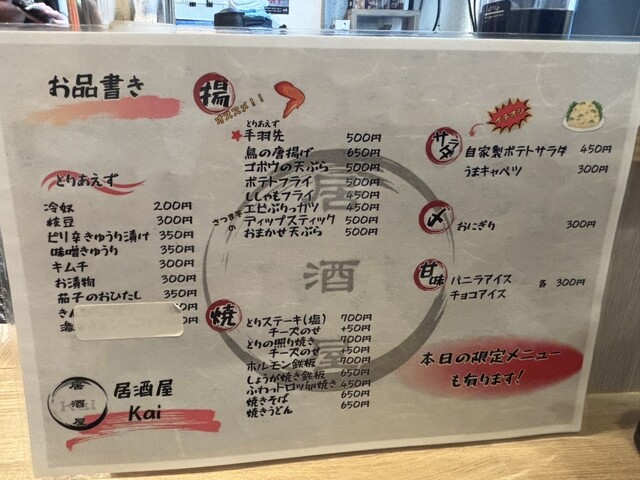 お品書き
とりあえず
冷奴 200円
枝豆 300円
ピリ辛きゅうり漬け 350円
味噌きゅうり 350円
キムチ 300円
お漬物 300円
茄子のおひたし 350円
揚
オススメ!!
とりあえず
★手羽先 500円
鳥の唐揚げ 650円
ゴボウの天ぷら 500円
ポテトフライ 500円
ししゃもフライ 450円
エビぷりっカツ 500円
さつま芋のディップスティック 500円
おまかせ天ぷら 500円
焼
とりステーキ(塩) 700円
チーズのせ +50円
とりの照り焼き 700円
チーズのせ +50円
ホルモン鉄板 700円
しょうが焼き鉄板 650円
ふわっトロッ卵焼き 450円
焼きそば 650円
焼きうどん 650円
イチオシ
サラダ
自家製ポテトサラダ 450円
うまキャベツ 300円
〆
おにぎり 300円
甘味
バニラアイス
チョコアイス
各 300円
本日の限定メニュー
も有ります!
居酒屋
居酒屋
Kai
居酒屋
Kai